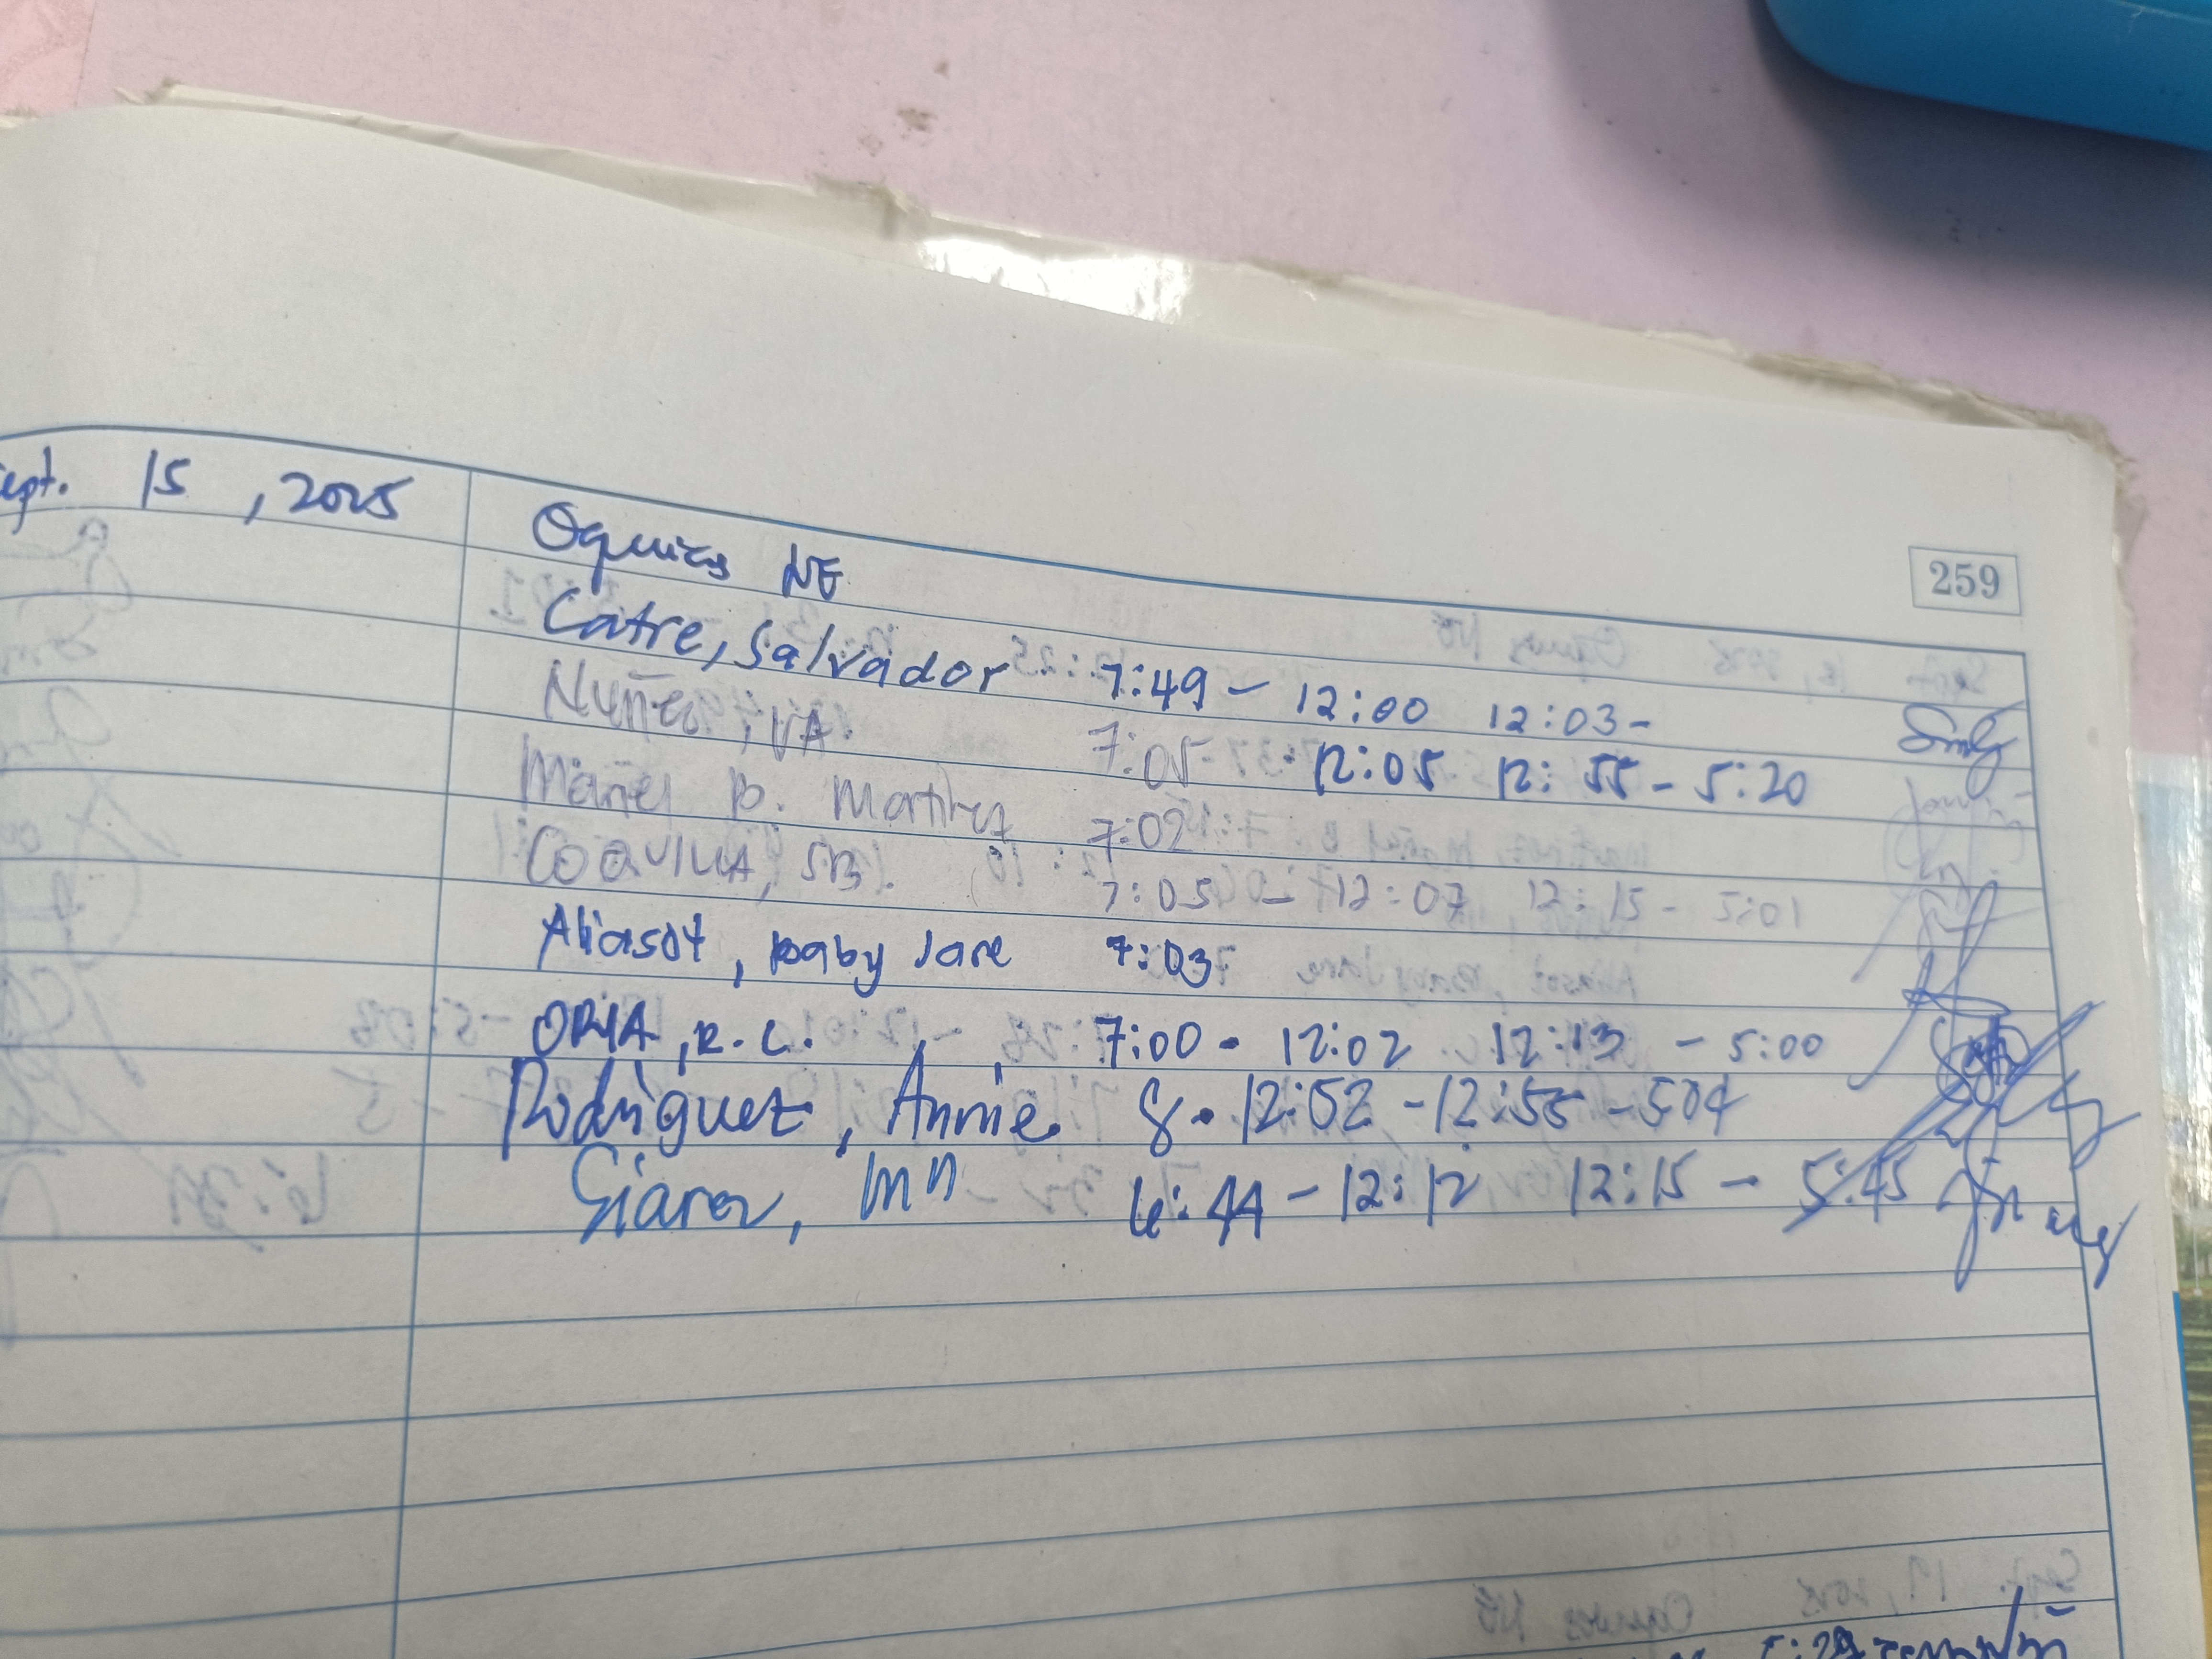 259
Sept. 15, 2025 Oquias NE
Catre, Salvador 7:49 - 12:00 12:03-
Nuñez, VA. 7:05 - 12:05 12:55 - 5:20
Mariel B. Martinez 7:02
COQUILLA, SB. 7:05 - 12:07 12:15 - 5:01
Aliasot, Baby Jane 7:03
ORIA, R.C. 7:00 - 12:02 12:13 - 5:00
Rodriguez, Annie 8 - 12:52 - 12:55 - 504
6:44 - 12:12 12:15 - 5:45